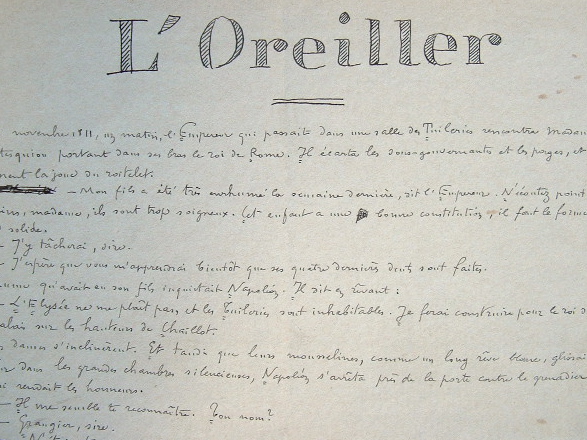 L'Oreiller
novembre 1811, un matin, l'Empereur qui passait dans une salle des Tuileries rencontra Madam
tesquiou portant dans ses bras le roi de Rome. Il écarta les sous-gouvernantes et les pages, et
la joue du roitelet.
– Mon fils a été très enrhumé la semaine dernière, dit l'Empereur. N'écoutez point
ins, madame, ils sont trop soigneux. Cet enfant a une bonne constitution, il faut le forme
solide.
– J'y tâcherai, sire.
– J'espère que vous m'apprendrez bientôt que ses quatre dernières dents sont faites.
hume qu'avait eu son fils inquiétait Napoléon. Il dit en rêvant :
– L'Elysée ne me plaît pas et les Tuileries sont inhabitables. Je ferai construire pour le roi d
alais sur les hauteurs de Chaillot.
s dames s'inclinèrent. Et tandis que leurs mousselines, comme un long rêve blanc, glissai
dans les grandes chambres silencieuses, Napoléon s'arrêta près de la porte contre le grenadier
i rendait les honneurs.
– Il me semble te reconnaître. Ton nom?
– Grangier, sire.